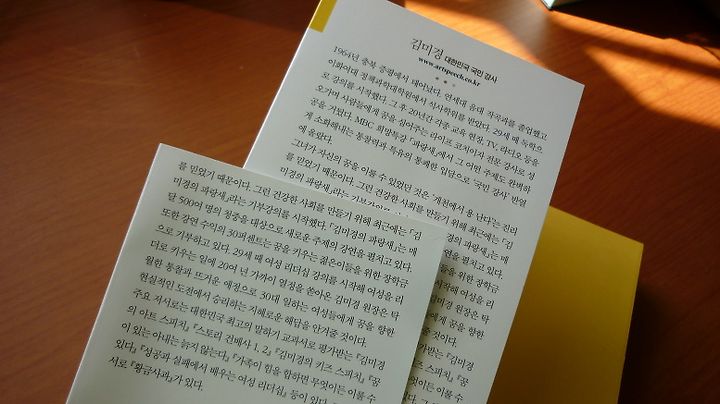 김미경 대한민국 국민 강사
www.artspeech.co.kr
1964년 충북 증평에서 태어났다. 연세대 음대 작곡과를 졸업했고
이화여대 정책과학대학원에서 석사학위를 받았다. 29세 때 독학으
로 강의를 시작했다. 그 후 20년간 각종 교육 현장, TV, 라디오 등을
오가며 사람들에게 꿈을 심어주는 라이프 코치이자 전문 강사로 성
공을 거뒀다. MBC 희망특강 「파랑새」에서 그 어떤 주제도 완벽하
게 소화해내는 통찰력과 특유의 통쾌한 입담으로 '국민 강사' 반열
에 올랐다.
그녀가 자신의 꿈을 이룰 수 있었던 것은 '개천에서 용 난다'는 진리
를 믿었기 때문이다. 그런 건강한 사회를 만들기 위해 최근에는 「김
미경의 파랑새」라는 기부강의를
를 믿었기 때문이다. 그런 건강한 사회를 만들기 위해 최근에는 「김
미경의 파랑새」라는 기부강의를 시작했다. 「김미경의 파랑새」는 매
달 500여 명의 청중을 대상으로 새로운 주제의 강연을 펼치고 있다.
또한 강연 수익의 30퍼센트는 꿈을 키우는 젊은이들을 위한 장학금
으로 기부하고 있다. 29세 때 여성 리더십 강의를 시작해 여성을 리
더로 키우는 일에 20여 년 가까이 열정을 쏟아온 김미경 원장은 탁
월한 통찰과 뜨거운 애정으로 30대 일하는 여성들에게 꿈을 향한
현실적인 도전에서 승리하는 지혜로운 해답을 안겨줄 것이다.
주요 저서로는 대한민국 최고의 말하기 교과서로 평가받는 『김미경
의 아트 스피치』 『스토리 건배사 1, 2』 『김미경의 키즈 스피치』 『꿈
이 있는 아내는 늙지 않는다』 『가족이 힘을 합하면 무엇이든 이룰 수
있다』 『성공과 실패에서 배우는 여성 리더십』 등이 있다.
서로 『황금사과』가 있다.